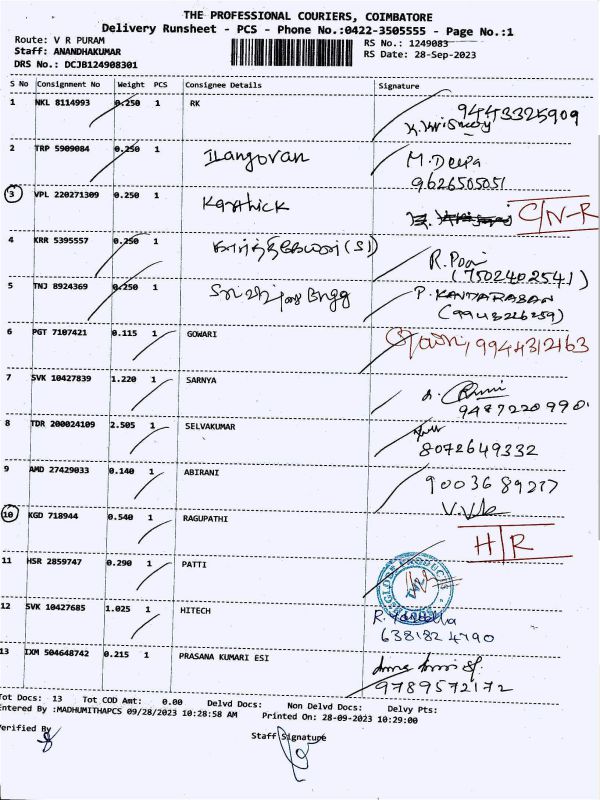 THE PROFESSIONAL COURIERS, COIMBATORE
Delivery Runsheet - PCS - Phone No.:0422-3505555 - Page No.:1
Route: V R PURAM
RS No.: 1249083
Staff: ANANDHAKUMAR
RS Date: 28-Sep-2023
DRS No.: DCJB124908301
S No Consignment No Weight PCS Consignee Details Signature
1 NKL 8114993 0.250 1 RK 9443325909
2 TRP 5909084 0.250 1 Ilangovan M. Deepa
9626505051
3 VPL 220271309 0.250 1 Karthick C/N-R
4 KRR 5395557 0.250 1 கார்த்திகேயன் (SI) R. Poor
(7502402541)
5 TNJ 8924369 0.250 1 P. KANDARABAN
(9943226259)
6 PGT 7107421 0.115 1 GOWARI 9944312163
7 SVK 10427839 1.220 1 SARNYA
9487220990
8 TDR 200024109 2.505 1 SELVAKUMAR
8072649332
9 AMD 27429033 0.140 1 ABIRANI 9003689217
10 KGD 718944 0.540 1 RAGUPATHI H/R
11 HSR 2859747 0.290 1 PATTI
12 SVK 10427685 1.025 1 HITECH
6381824790
13 IXM 504648742 0.215 1 PRASANA KUMARI ESI
9789572172
Tot Docs: 13 Tot COD Amt: 0.00 Delvd Docs: Non Delvd Docs: Delvy Pts:
Entered By :MADHUMITHAPCS 09/28/2023 10:28:58 AM Printed On: 28-09-2023 10:29:00
Verified By Staff Signature